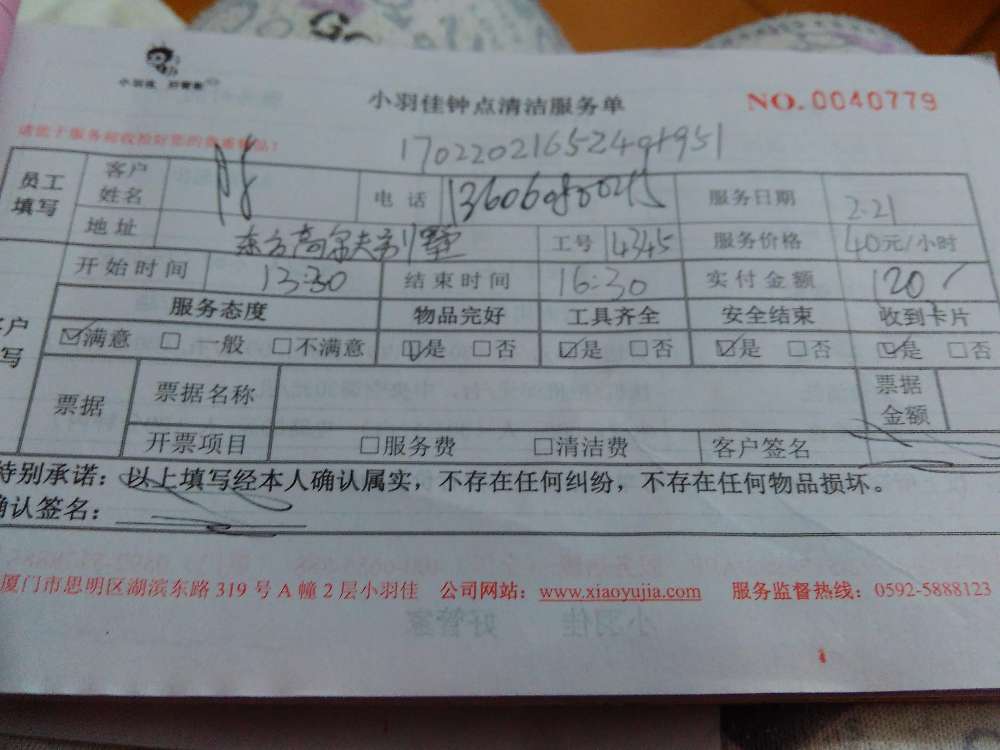 小羽佳 好管家
小羽佳钟点清洁服务单 NO.0040779
请您于服务前收拾好您的贵重物品!
员工填写 客户姓名 电话 服务日期 2.21
地址 东方高尔夫别墅 工号 4345 服务价格 40元/小时
开始时间 13:30 结束时间 16:30 实付金额 120
服务态度 物品完好 工具齐全 安全结束 收到卡片
☑满意 □一般 □不满意 ☑是 □否 ☑是 □否 ☑是 □否 ☑是 □否
票据 票据名称 票据金额
开票项目 □服务费 □清洁费 客户签名
特别承诺:以上填写经本人确认属实,不存在任何纠纷,不存在任何物品损坏。
确认签名:
厦门市思明区湖滨东路 319 号 A 幢 2 层小羽佳 公司网站:www.xiaoyujia.com 服务监督热线:0592-5888123